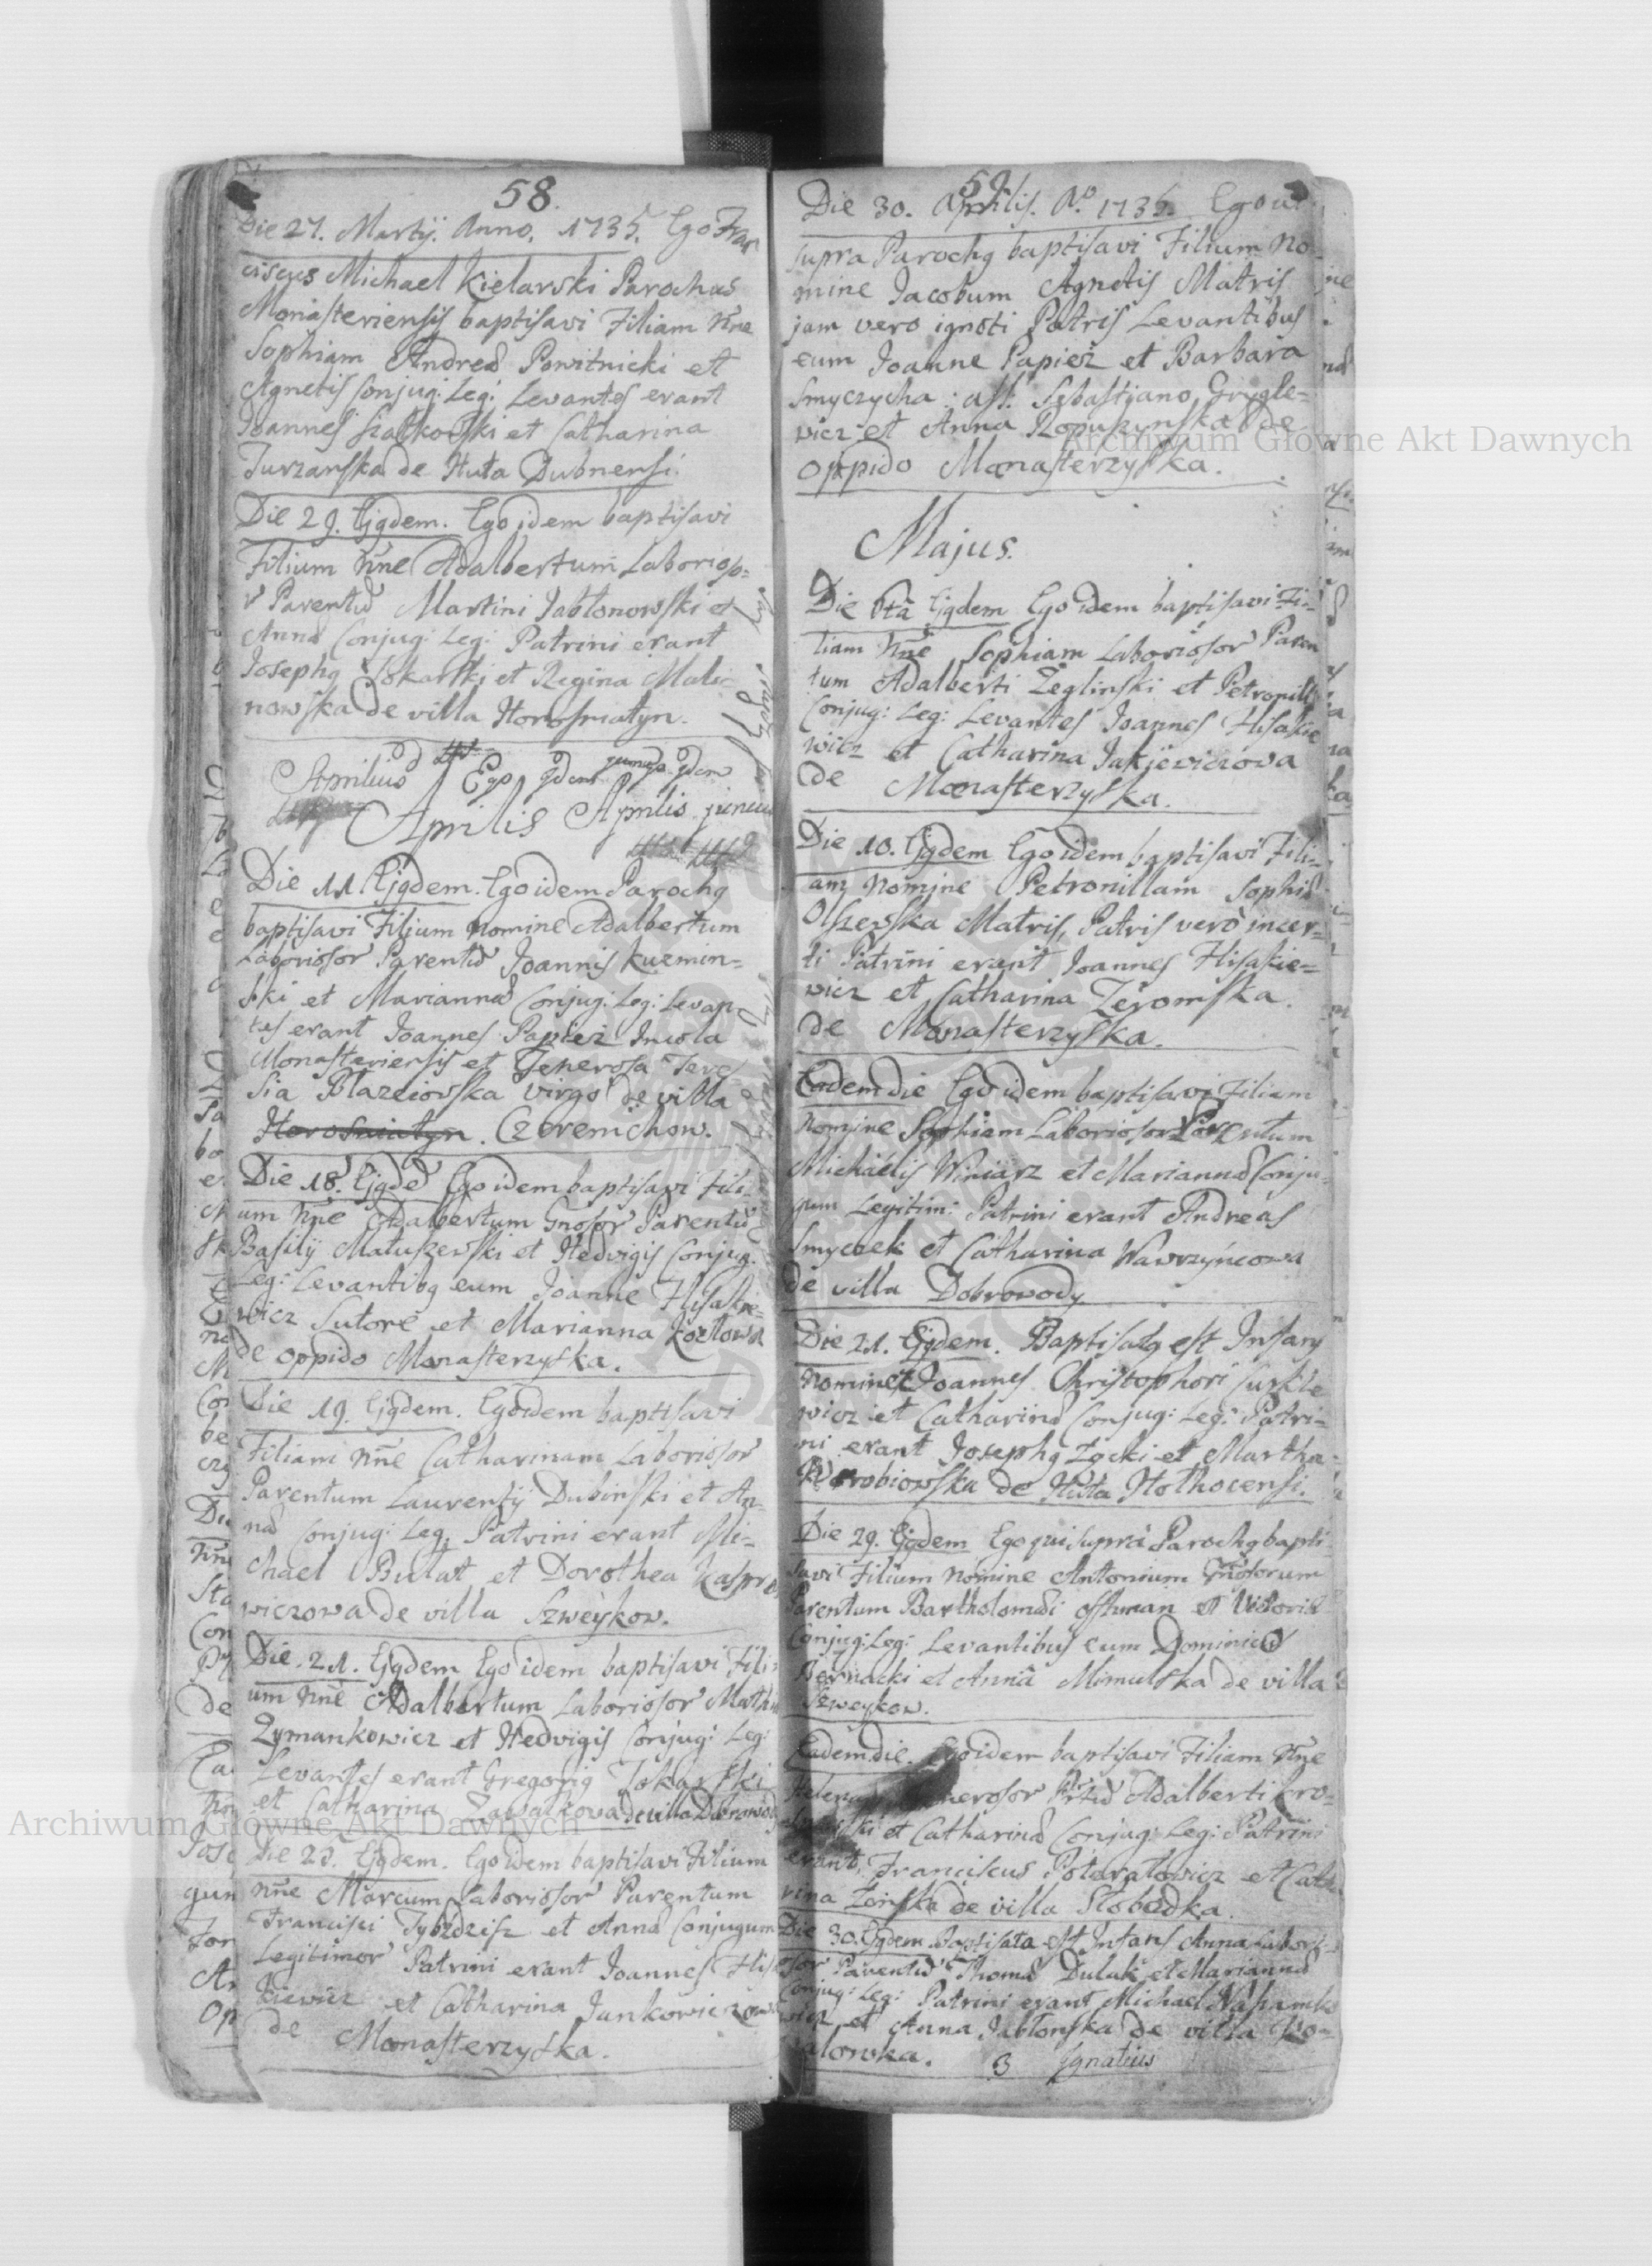 58.
Die 27. Martij. Anno. 1735. Ego Fran
ciscus Michael Kielarski Parochus
Monasteriensis baptisavi Filiam Nne
Sophiam Andreæ Powitnicki et
Agnetis Conjug: Leg: Levantes erant
Joannes et Catharina
Jurzanska de Huta Dubnensi.
Die 29. Ejqdem. Ego idem baptisavi
Filium Nne Adalbertum Laborioso=
r Parentu Martini Jabłonowski et
Anna Conjug: Leg: Patrini erant
Josephq Tokarski et Regina Mali
nowska de villa Horosniatyn.
Aprilius Ego
Aprilis Aprilis
Die 11. Ejqdem. Ego idem Parochq
baptisavi Filium Nomine Adalbertum
Laboriosor Parentu Joannis Kuzmin=
ski et Mariannæ Conjug: Leg: Levan
tes erant Joannes Papiez Incola
Monasteriensis et Generosa There
sia Błazeiowska virgo de villa
Horosniatyn. Czeremchow.
Die 18. Ejqde Ego idem baptisavi Fili
um Nne Adalbertum Gnosor Parentu
Basilij Matuszewski et Hedvigis Conjug.
Leg: Levantibq eum Joanne Hisakie=
wicz Sutore et Marianna Kozłowa
de oppido Monasterzyska.
Die 19. Ejqdem. Ego idem baptisavi
Filiam Nne Catharinam Laboriosor
Parentum Laurentij Dubinski et An=
næ Conjug: Leg. Patrini erant Mi=
chael Bulat et Dorothea Kaspre
wiczowa de villa Szweykow.
Die 21. Ejqdem Ego idem baptisavi Fili
um Nne Adalbertum Laboriosor Math
Zymankowicz et Hedvigis Conjug: Leg:
Levantes erant Gregoriq Tokarski
et Catharina Zawałkowa de villa Dobrowod
Die 25. Ejqdem. Ego idem baptisavi Filium
Nne Marcum Laboriosor Parentum
Francisci et Annæ Conjugum
Legitimor Patrini erant Joannes Hisa
kiewicz et Catharina Jankowiczowa
de Monasterzyska.
59.
Die 30. Aprilis. Ao 1735. Ego ut
supra Parochq baptisavi Filium No=
mine Jacobum Agnetis Matris
jam vero ignoti Patris Levantibus
eum Joanne Papiez et Barbara
Smyczycha: ass: Sebastiano Grygle=
wicz et Anna Ropuszynska de
oppido Monasterzyska.
Majus.
Die Ejqdem Ego idem baptisavi Fi=
liam Nne Sophiam Laboriosor Paren
tum Adalberti Zeglinski et Petronill
Conjug: Leg: Levantes Joannes Hisakie
wicz et Catharina Jakjewiczowa
de Monasterzyska.
Die 10. Ejqdem Ego idem baptisavi Fili=
am Nomine Petronillam Sophiæ
Olszewska Matris, Patris vero incer=
ti Patrini erant Joannes Hisakie=
wicz et Catharina Zeromska.
de Monasterzyska.
Eadem die Ego idem baptisavi Filiam
Nomine Sophiam Laboriosor Parentum
Michaelis Winiarz et Mariannæ Conju
gum Legitim: Patrini erant Andreas
Smyczek et Catharina Wawrzyńcowa
de villa Dobrowody.
Die 21. Ejqdem. Baptisatq est Infans
Nomine Joannes Christophori
wicz et Catharinæ Conjug: Leg: Patri=
ni erant Josephq Zycki et Martha
Worobiowska de Huta Hothocensi.
Die 29. Ejqdem Ego qui supra Parochq bapti
savi Filium Nomine Antonium Gnosorum
Parentum Bartholomæi Offman et Victoriæ
Conjug: Leg: Levantibus eum Dominico
Bernacki et Anna Mimulska de villa
Szweykow.
Eadem die. Ego idem baptisavi Filiam Nne
Helena nerosor Prtu Adalberti Kro=
ski et Catharinæ Conjug: Leg: Patrini
erant. Franciscus Potaratowicz et Catha
rina Zeńska de villa Słobodka.
Die 30. Ejqdem. Baptisata est Infans Anna Laborio=
sor Parentu Thomæ Dulak et Mariannæ
Conjug: Leg: Patrini erant Michael
wicz et Anna Jabłonska de villa Ko=
walowka. 3 Ignatius
Archiwum Główne Akt Dawnych
Archiwum Główne Akt Dawnych